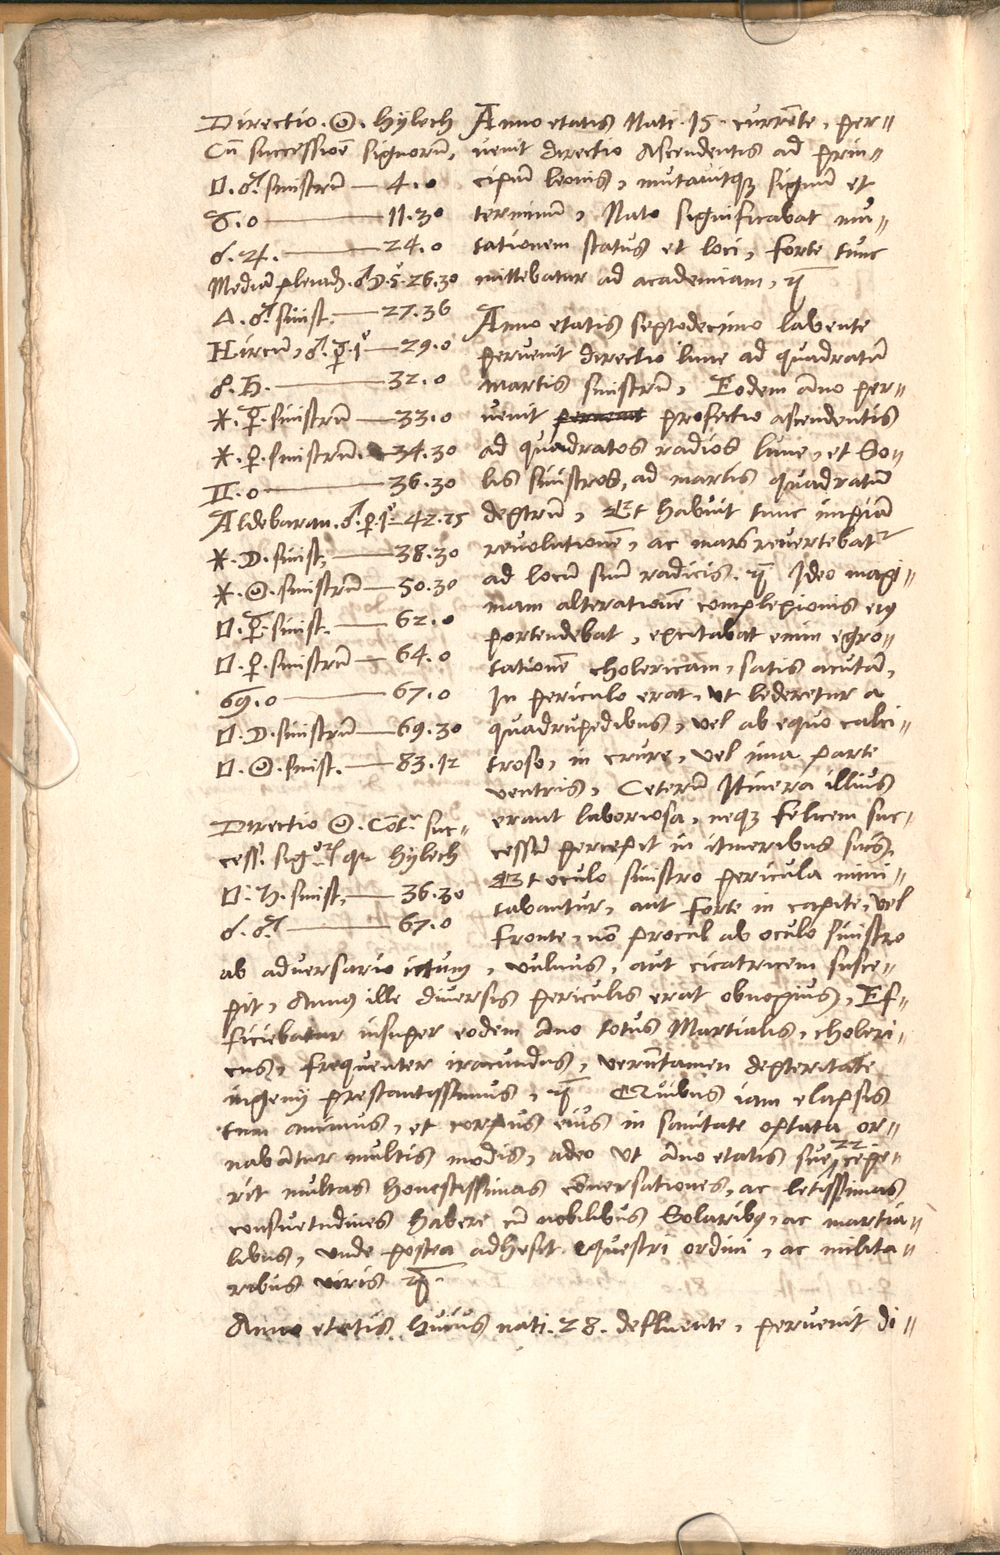 Directio . ☉ . hÿlech
Cū successioē signorū,
□ . ♂ . sinistrū — 4 . 0
♉ . 0 — 11 . 30
☌ . ♃ . — 24 . 0
Mediū pleiadū . 26 . 30
△ . ♂ . sinist. — 27 . 36
Hircū, — 29 . 0
☌ . ♄ . — 32 . 0
✶ . sinistrū — 33 . 0
✶ . ♀ . sinistrū. — 34 . 30
♊ . 0 — 36 . 30
Aldebaran . — 42 . 25
✶ . ☽ . sinist, — 38 . 30
✶ . ☉ . sinistrū — 50 . 30
□ . sinist. — 62 . 0
□ . ♀ . sinistrū — 64 . 0
♋ . 0 — 67 . 0
□ . ☽ . sinistrū — 69 . 30
□ . ☉ . sinist. — 83 . 12
Directio ☉ . Cōt. suc=
cess. hÿlech
□ . ♄ . sinist, — 36 . 30
☌ . ♂ — 67 . 0
Anno etatis Nati . 15 . currēte, per=
uenit directio Ascendentis ad prin=
cipiū leonis, mutauitqȝ signū et
terminū, Nato significabat mu=
tationem status et loci, forte tunc
mittebatur ad academiam,
Anno etatis septodecimo labente
peruenit directio lune ad quadratū
martis sinistrū, Eodem āno per=
uenit profectio ascendentis
ad quadratos radios lune, et So=
lis sinistros, ad martis quadratū
dextrū, Et habuit tunc impiā
reuolutionē, ac mars reuertebat
ad locū suū radicis. Ideo magi=
mam alterationē complexionis eiꝰ
portendebat, excitabat enim egro=
tationē cholericam, satis acutā,
In periculo erat, ut lederetur a
quadrupedibus, vel ab equo calci=
troso, in crure, vel ima parte
ventris, Ceterū Itinera illius
erant laboriosa, neqȝ felicem suc=
cessū percepit in itineribus suis,
Et oculo sinistro pericula mini=
tabantur, aut forte in capite, vel
fronte, nō procul ab oculo sinistro
ab aduersario ictum, vulnus, aut cicatricem susce=
pit, Annꝰ ille diuersis periculis erat obnoxius, Ef=
ficiebatur insuper eodem āno totus Martialis, choleri=
cus, frequenter iracundus, verūtamen dexteritate
ingenij prestantissimus, Quibus iam elapsis
tum animus, et corpus eius in sanitate optata or=
nabātur multis modis, adeo ut āno etatis sue, 22 cepe=
rit multas honestissimas cōuersationes, ac letissimas
consuetudines habere cū nobilibus Solaribꝰ, ac martia=
libus, vnde postea adhesit equestri ordini, ac milita=
ribus viris
Anno etatis huius nati . 28 . defluente, peruenit di=